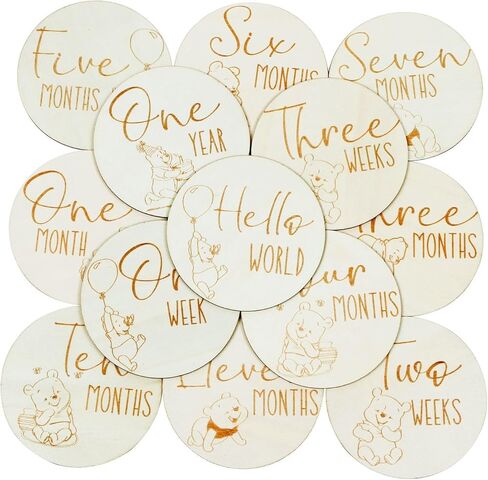 Five
MONTHS
Six
MONTHS
Seven
MONTHS
One
YEAR
Three
WEEKS
One
MONTH
Hello
WORLD
Three
MONTHS
One
WEEK
our
MONTHS
Ten
MONTHS
leve
MONTHS
Two
WEEKS